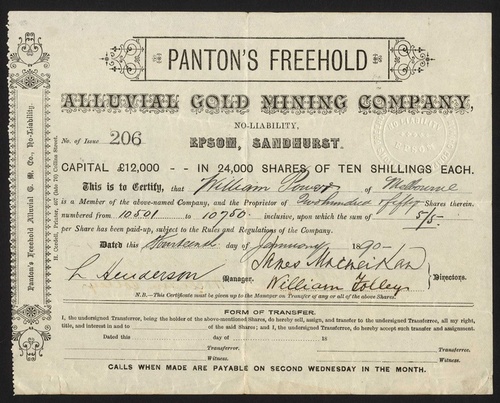 PANTON'S FREEHOLD
ALLUVIAL GOLD MINING COMPANY,
NO-LIABILITY,
No. of Issue 206
EPSOM, SANDHURST.
CAPITAL £12,000 - - IN 24,000 SHARES OF TEN SHILLINGS EACH.
This is to Certify, that William Power of Melbourne
is a Member of the above-named Company, and the Proprietor of Two hundred & fifty Shares therein,
numbered from 10501 to 10750 inclusive, upon which the sum of 5/5
per Share has been paid-up, subject to the Rules and Regulations of the Company.
Dated this day of January 1890
L Henderson Manager. James
William Tolley Directors.
N.B.—This Certificate must be given up to the Manager on Transfer of any or all of the above Shares.
FORM OF TRANSFER.
I, the undersigned Transferror, being the holder of the above-mentioned Shares, do hereby sell, assign, and transfer to the undersigned Transferree, all my right,
title, and interest in and to of the said Shares; and I, the undersigned Transferree, do hereby accept such transfer and assignment.
Dated this day of 18
Transferror.
Witness.
Transferree.
Witness.
CALLS WHEN MADE ARE PAYABLE ON SECOND WEDNESDAY IN THE MONTH.
Panton's Freehold Alluvial G. M. Co., No-Liability.
Collins Street.